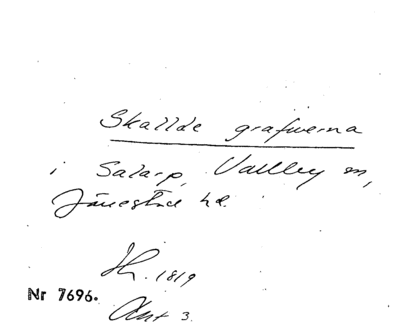 Skallde grafwerna
i Salarp, Vallby sn,
Järrestad hd.
H. 1819
Nr 7696.
Ant 3.